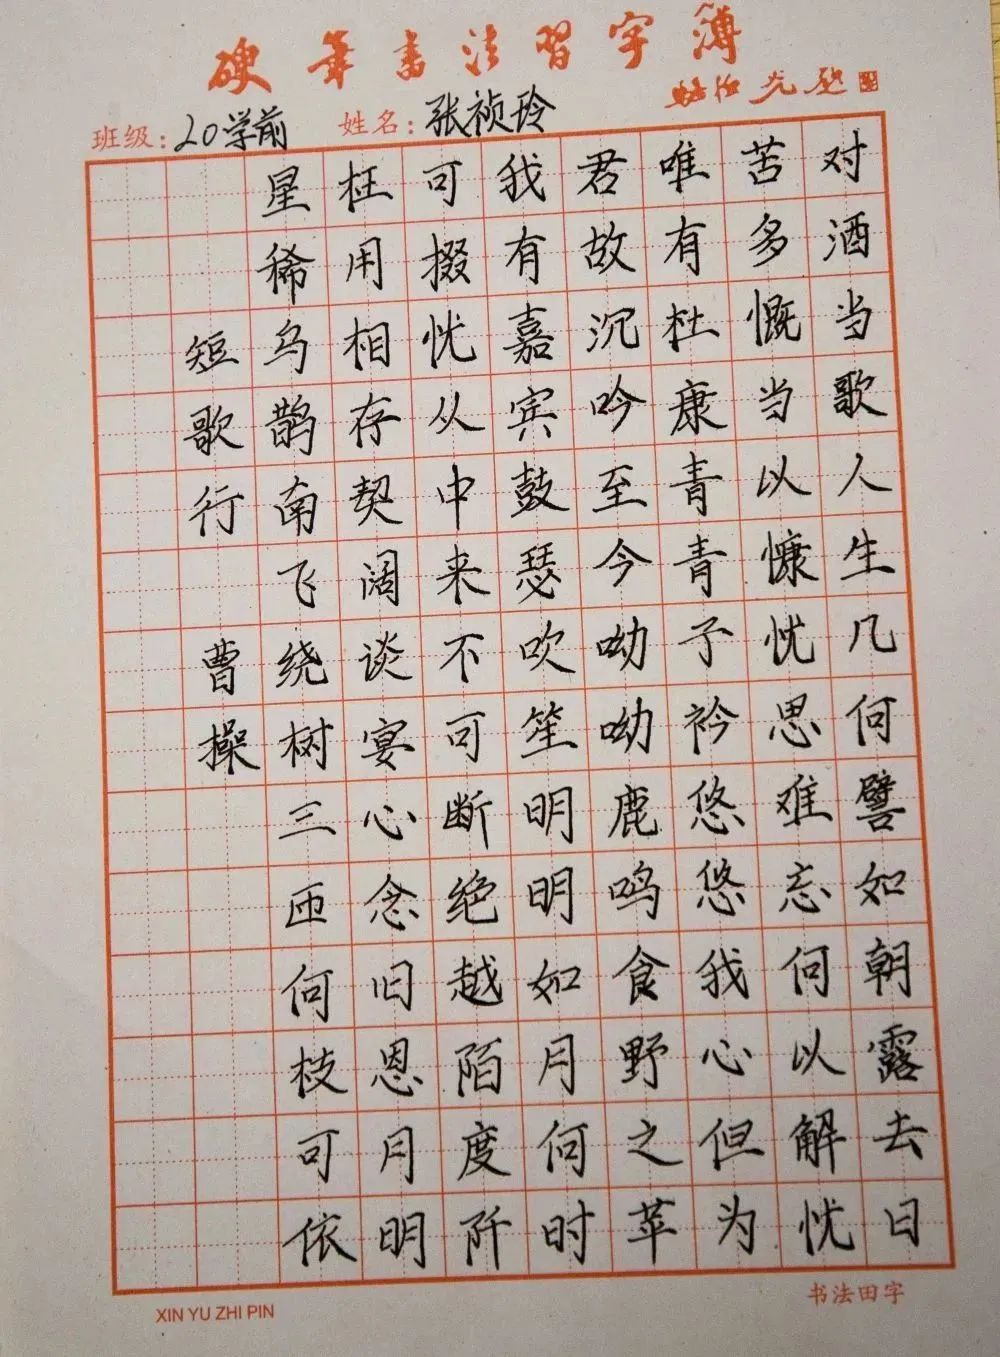 硬笔书法習字簿
班级：20学前 姓名：张祯玲
对酒当歌人生几何譬如朝露去日
苦多慨当以慷忧思难忘何以解忧
唯有杜康青青子衿悠悠我心但为
君故沉吟至今呦呦鹿鸣食野之苹
我有嘉宾鼓瑟吹笙明明如月何时
可掇忧从中来不可断绝越陌度阡
枉用相存契阔谈宴心念旧恩月明
星稀乌鹊南飞绕树三匝何枝可依
短歌行 曹操
XIN YU ZHI PIN
书法田字